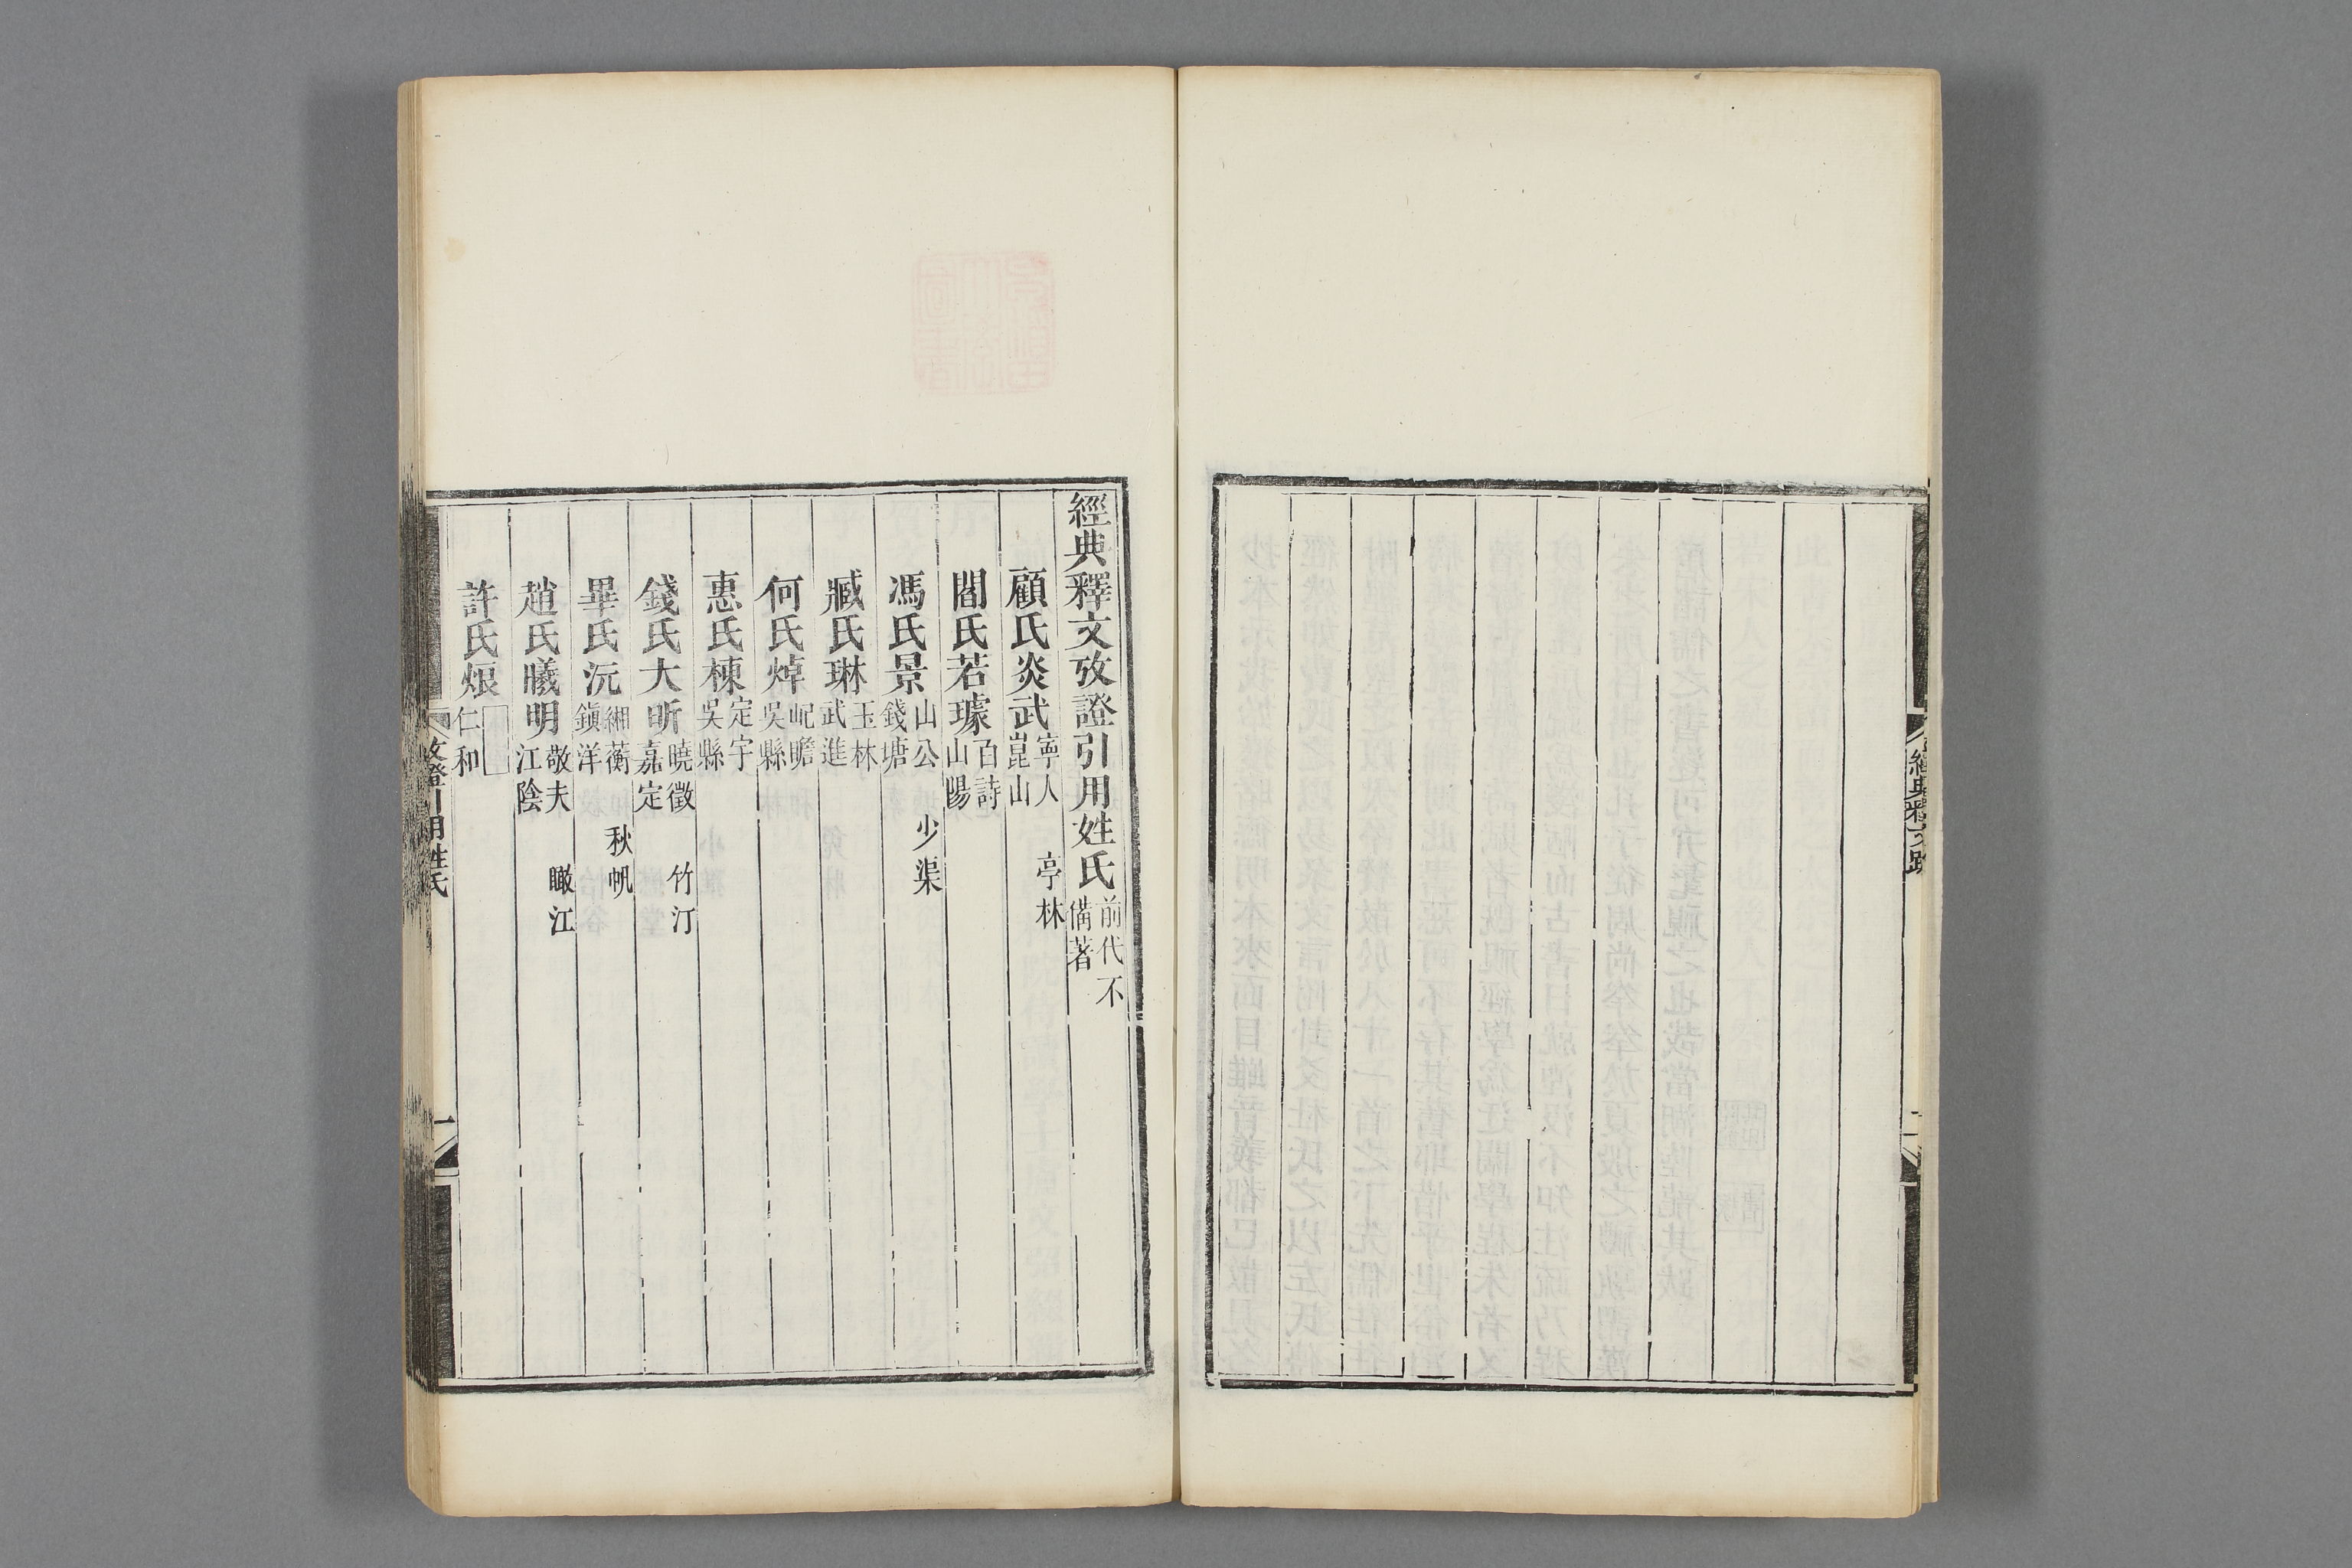 經典釋文攷證引用姓氏前代不備著
顧氏炎武寧人崑山 亭林
閻氏若璩百詩山陽
馮氏景山公錢塘 少渠
臧氏琳玉林武進
何氏焯屺瞻吳縣
惠氏棟定宇吳縣
錢氏大昕曉徵嘉定 竹汀
畢氏沅緗蘅鎭洋 秋帆
趙氏曦明敬夫江陰 瞰江
許氏烺仁和
攷證引用姓氏 一
經典釋文跋